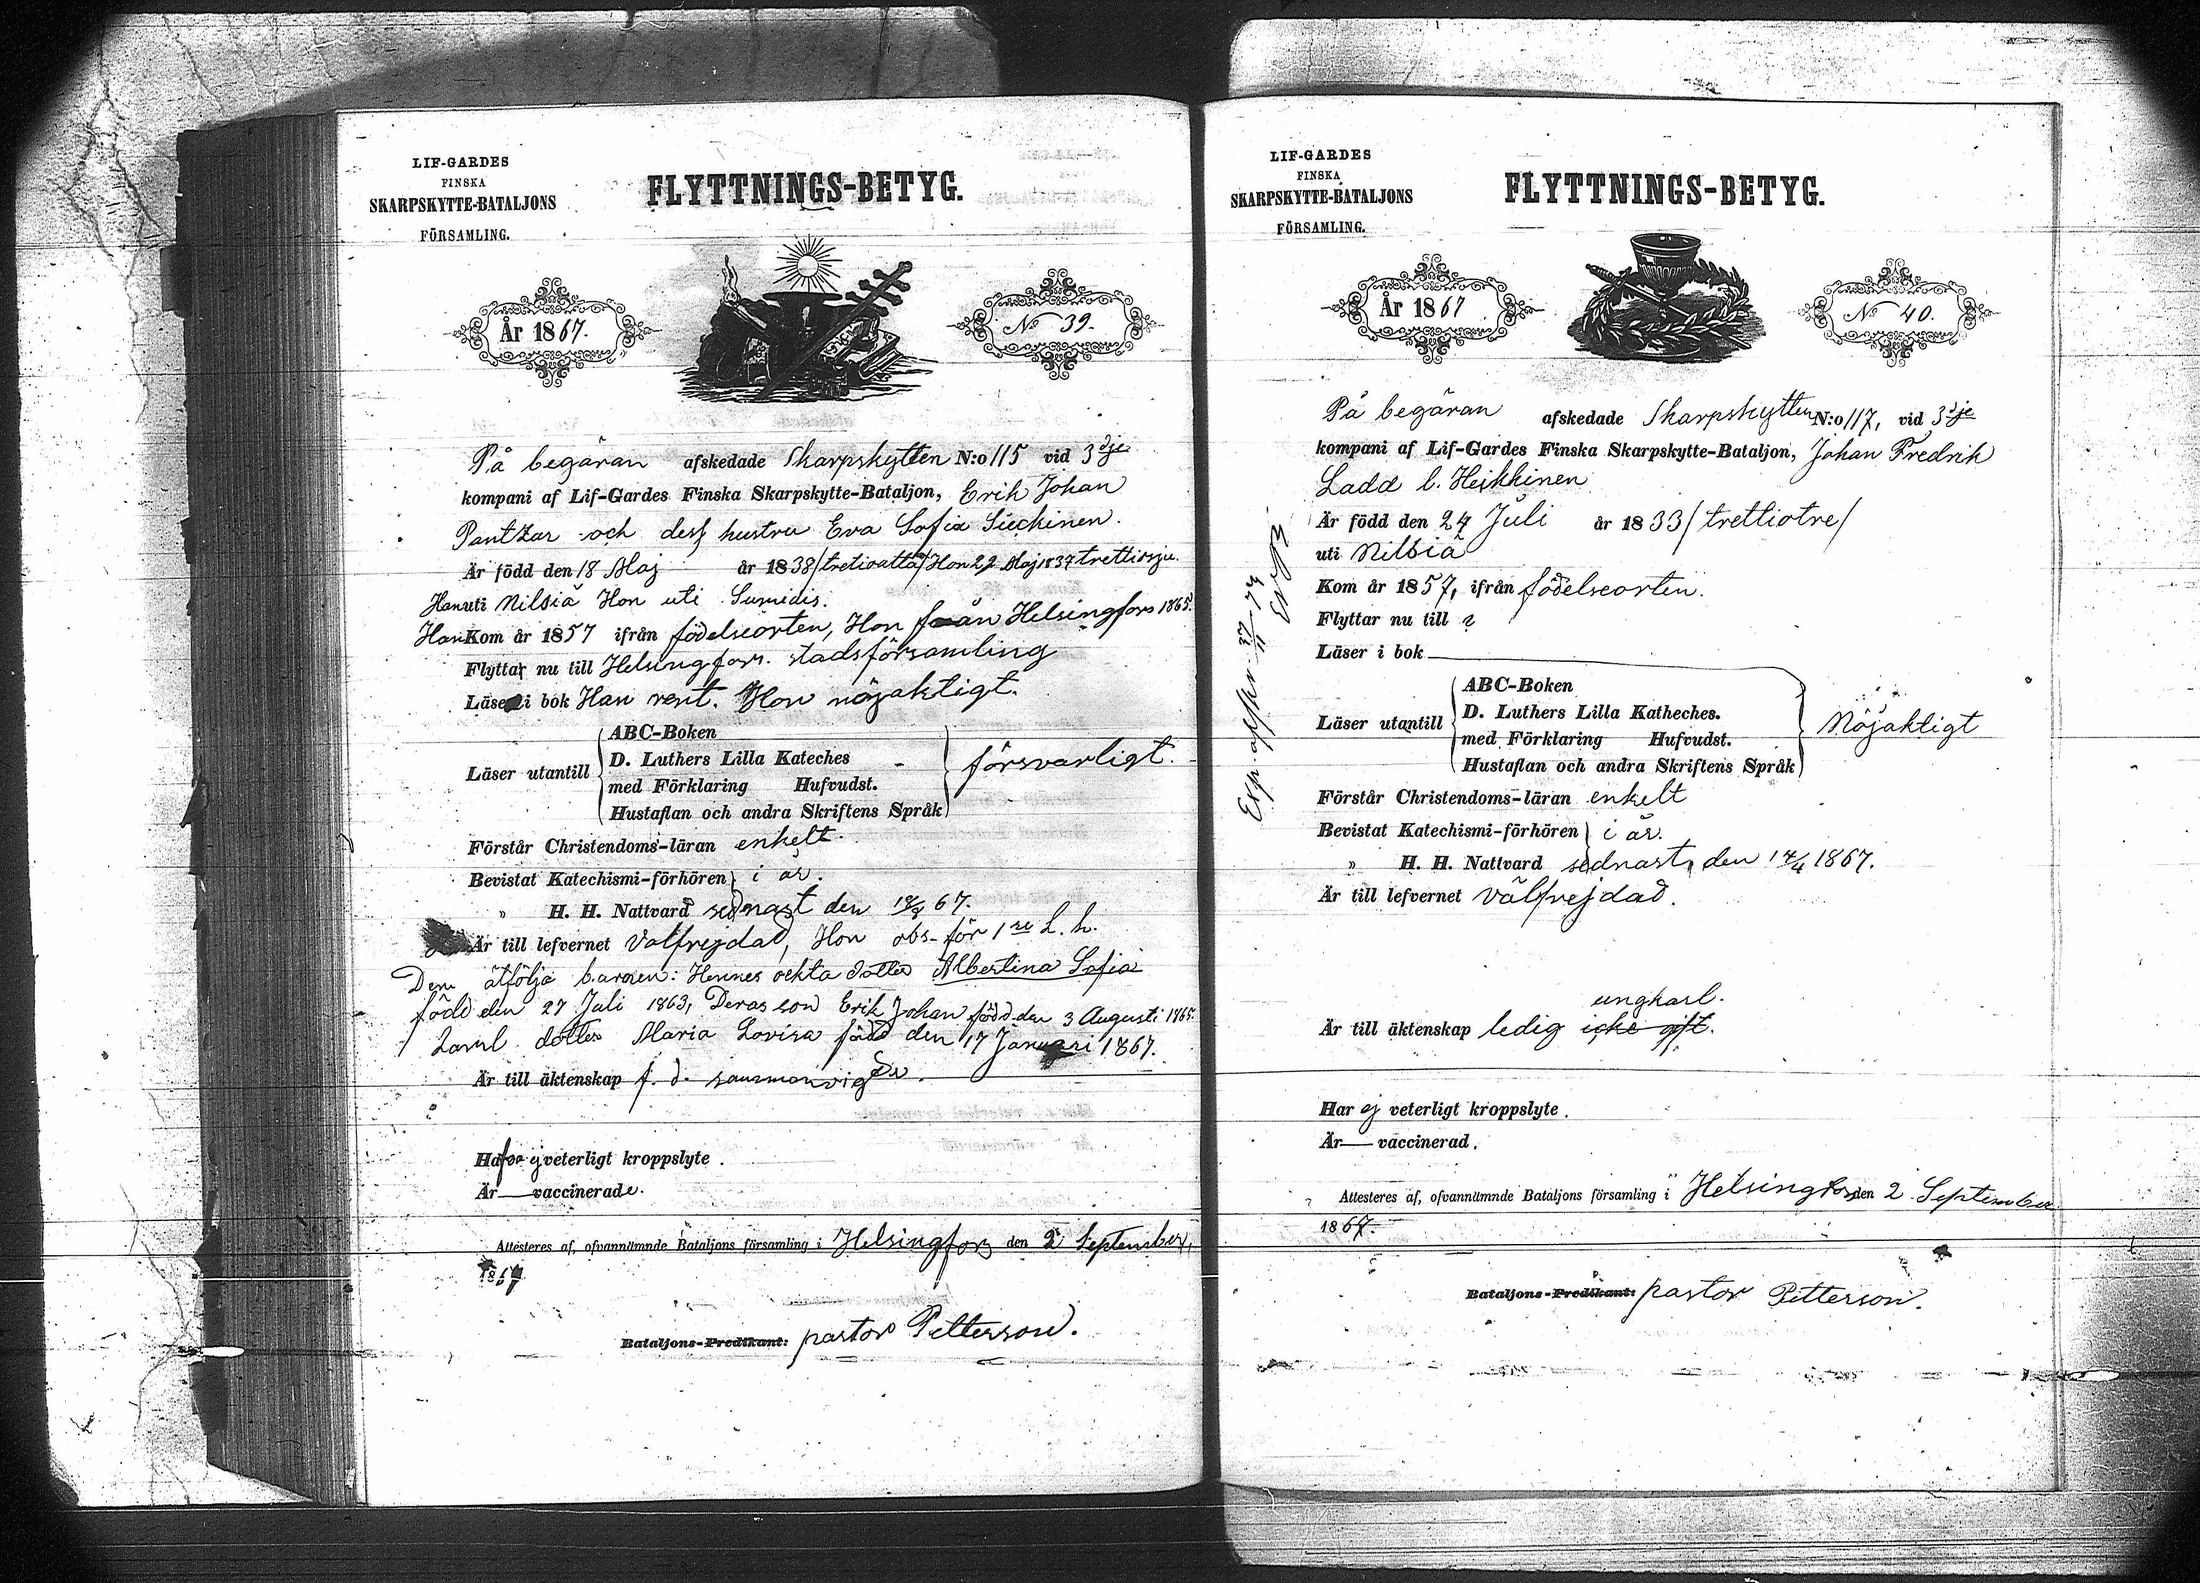 LIF-GARDES
FINSKA
SKARPSKYTTE-BATALJONS
FÖRSAMLING.
FLYTTNINGS-BETYG.
År 1867.
No 39.
På begäran afskedade Skarpskytten N:o 115 vid 3dje
kompani af Lif-Gardes Finska Skarpskytte-Bataljon, Erik Johan
Pantzar och dess hustru Eva Sofia
Är född den 18 Maj år 1838 /trettioåtta/ Hon 22 Maj 1837 trettiosju.
Han uti Nilsiä Hon uti Sumidis.
Han Kom år 1857 ifrån födelseorten, Hon från Helsingfors 1865.
Flyttar nu till Helsingfors stadsförsamling
Läser i bok Han rent. Hon nöjaktigt.
Läser utantill
ABC-Boken
D. Luthers Lilla Kateches
med Förklaring Hufvudst.
Hustaflan och andra Skriftens Språk
försvarligt.
Förstår Christendoms-läran enkelt.
Bevistat Katechismi-förhören i år.
" H. H. Nattvard sednast den 67.
Är till lefvernet Välfrejdad, Hon abs. för 1re L. h.
Dem åtfölja barnen: Hennes oekta dotter Albertina Sofia
född den 27 Juli 1863, Deras son Erik Johan född den 3 Augusti 1865.
samt dotter Maria Lovisa född den 17 Januari 1867.
Är till äktenskap f. d. sammanvigde.
Hafva ej veterligt kroppslyte.
Är — vaccinerade.
Attesteres af, ofvannämnde Bataljons församling i Helsingfors den 2 September,
1867
Bataljons-Predikant: pastor Petterson.
LIF-GARDES
FINSKA
SKARPSKYTTE-BATALJONS
FÖRSAMLING.
FLYTTNINGS-BETYG.
År 1867
No 40.
På begäran afskedade Skarpskytten N:o 117, vid 3dje
kompani af Lif-Gardes Finska Skarpskytte-Bataljon, Johan Fredrik
Ladd l. Heikkinen
Är född den 24 Juli år 1833 /trettiotre/
uti Nilsiä
Kom år 1857, ifrån födelseorten.
Flyttar nu till ?
Läser i bok
Läser utantill
ABC-Boken
D. Luthers Lilla Katheches.
med Förklaring Hufvudst.
Hustaflan och andra Skriftens Språk
Nöjaktigt
Förstår Christendoms-läran enkelt
Bevistat Katechismi-förhören i år.
" H. H. Nattvard sednast, den 14/4 1867.
Är till lefvernet välfrejdad.
ungkarl.
Är till äktenskap ledig icke gift.
Har ej veterligt kroppslyte.
Är — vaccinerad.
Attesteres af, ofvannämnde Bataljons församling i Helsingfors den 2 September
1867.
Bataljons-Predikant: pastor Petterson.